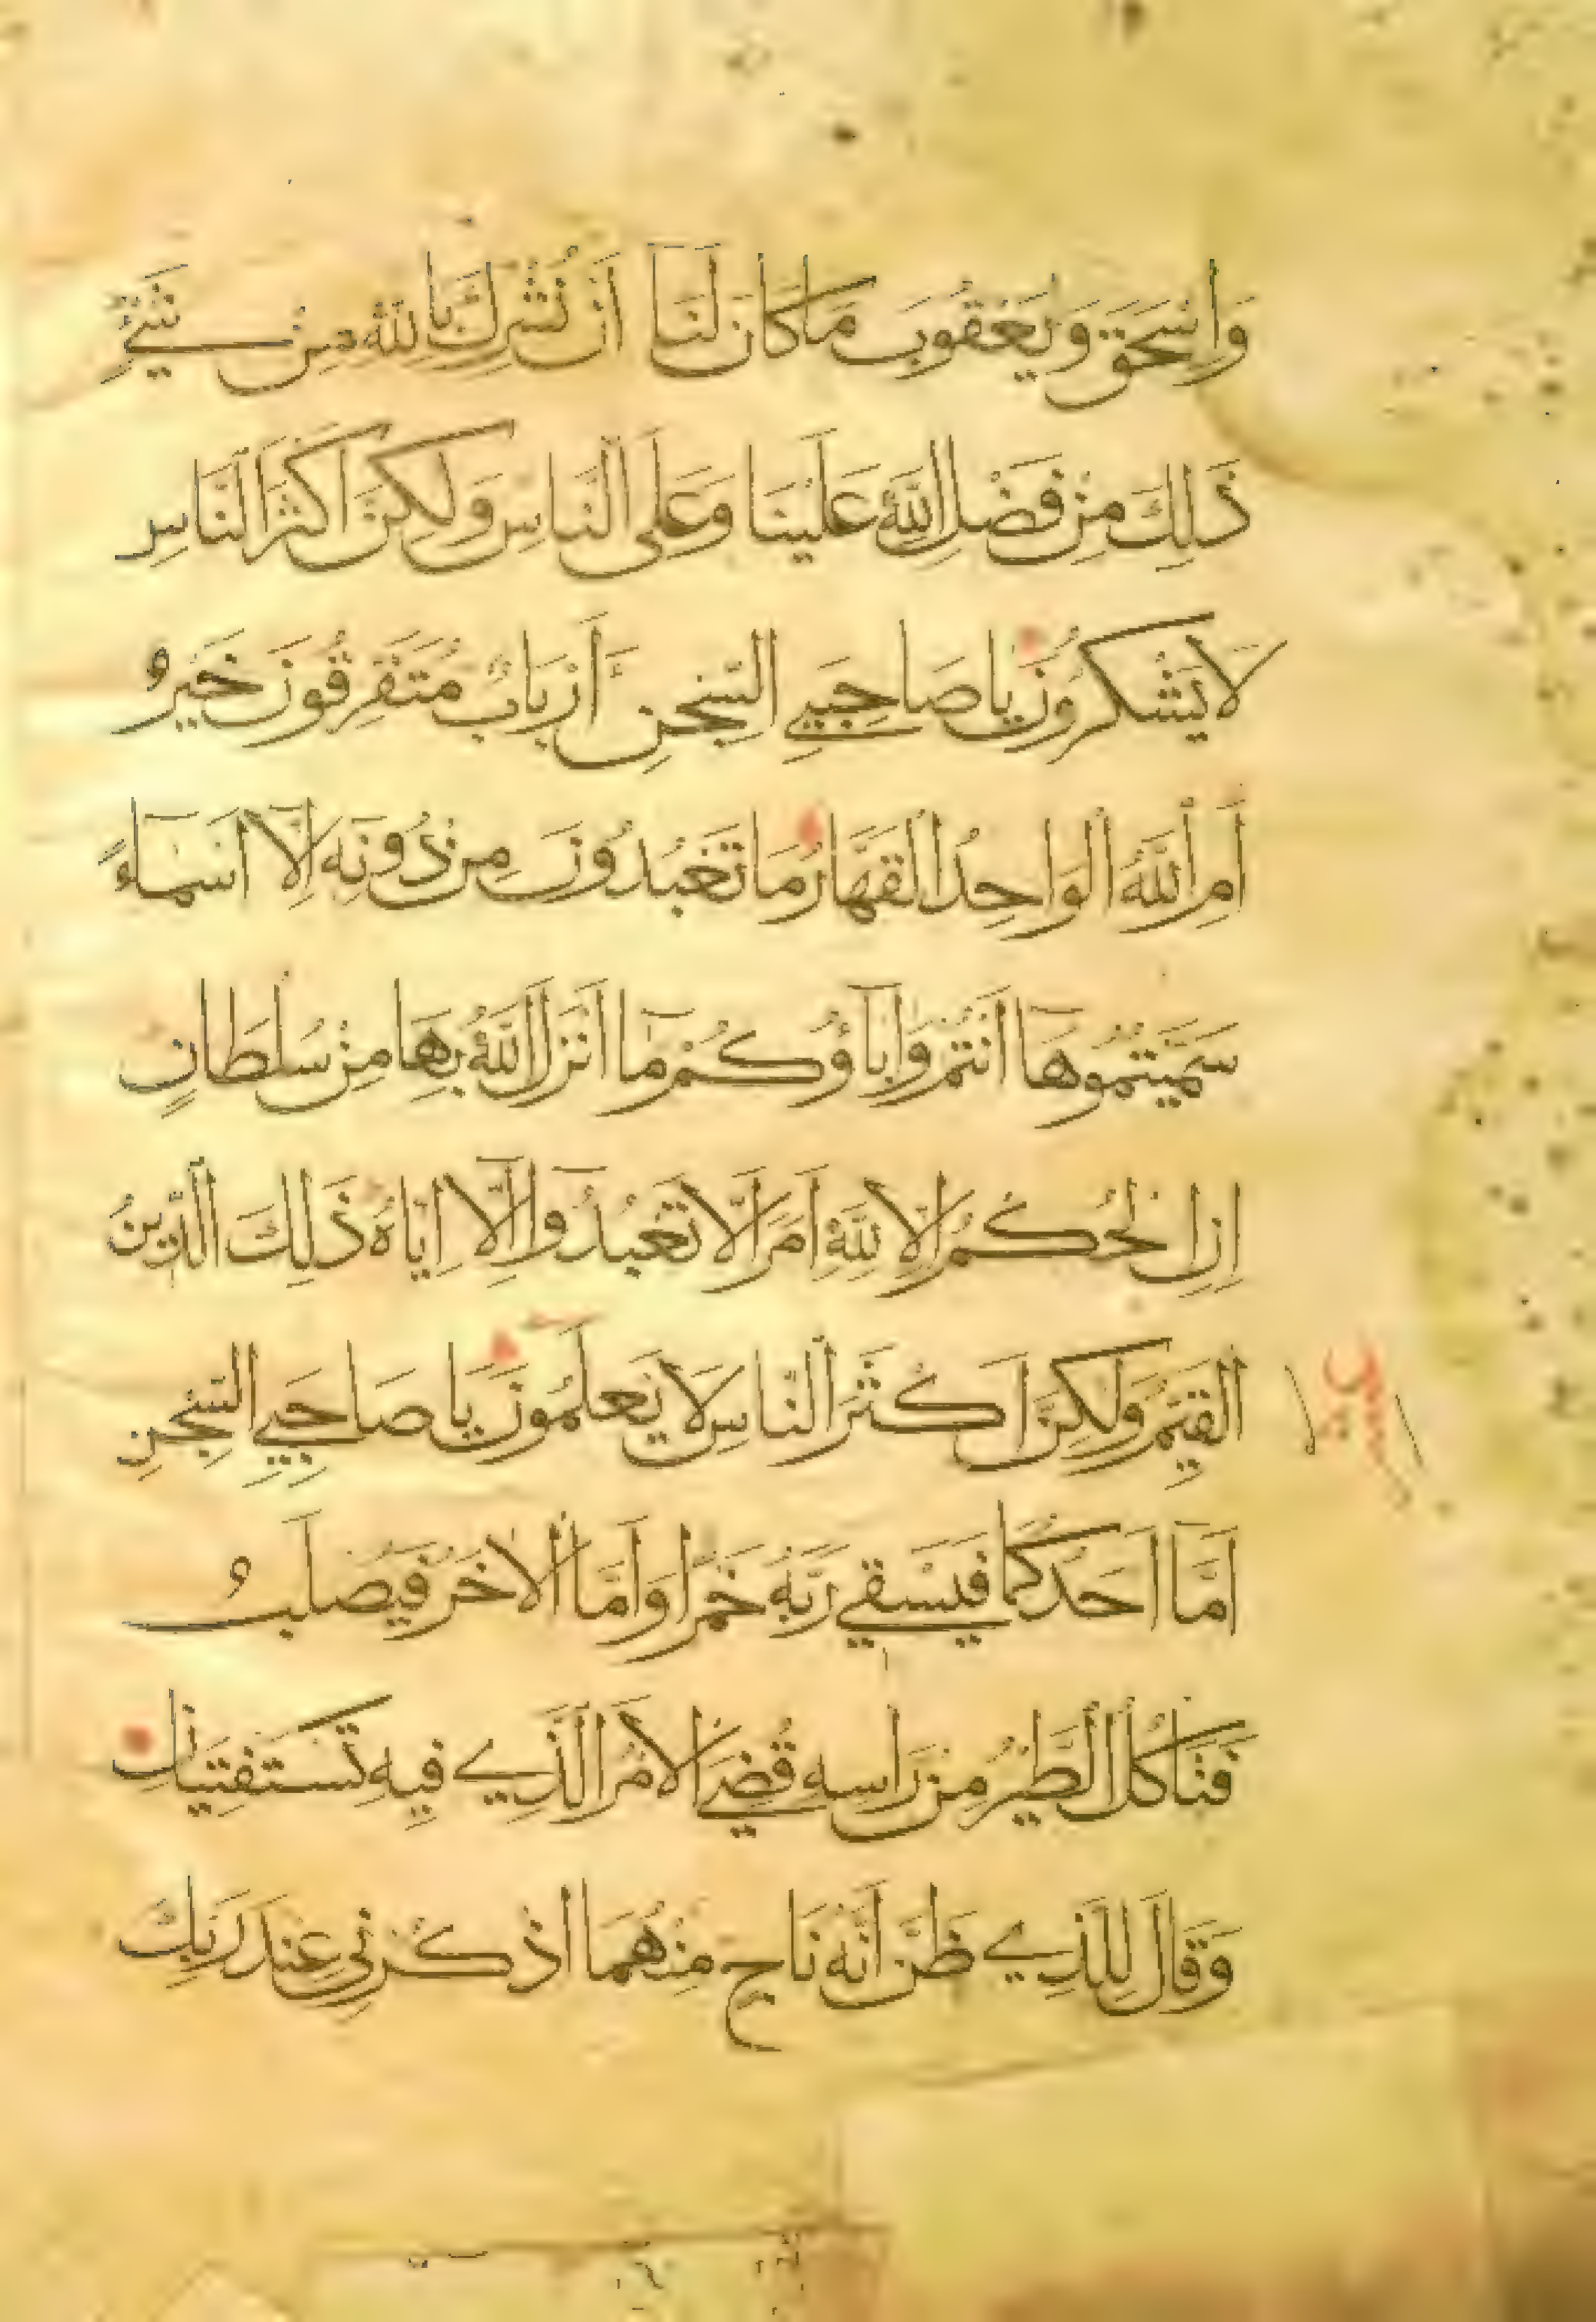 وَاِسْحٰقَ وَيَعْقُوبَ مَا كَانَ لَنَآ اَنْ نُشْرِكَ بِاللّٰهِ مِنْ شَيْءٍ
ذٰلِكَ مِنْ فَضْلِ اللّٰهِ عَلَيْنَا وَعَلَى النَّاسِ وَلٰكِنَّ اَكْثَرَ النَّاسِ
لَا يَشْكُرُونَ يَا صَاحِبَيِ السِّجْنِ ءَاَرْبَابٌ مُتَفَرِّقُونَ خَيْرٌ
اَمِ اللّٰهُ الْوَاحِدُ الْقَهَّارُ مَا تَعْبُدُونَ مِنْ دُونِهِ اِلَّآ اَسْمَآءً
سَمَّيْتُمُوهَآ اَنْتُمْ وَاٰبَآؤُكُمْ مَآ اَنْزَلَ اللّٰهُ بِهَا مِنْ سُلْطَانٍ
اِنِ الْحُكْمُ اِلَّا لِلّٰهِ اَمَرَ اَلَّا تَعْبُدُوٓا اِلَّآ اِيَّاهُ ذٰلِكَ الدِّينُ
الْقَيِّمُ وَلٰكِنَّ اَكْثَرَ النَّاسِ لَا يَعْلَمُونَ يَا صَاحِبَيِ السِّجْنِ
اَمَّآ اَحَدُكُمَا فَيَسْقِي رَبَّهُ خَمْرًا وَاَمَّا الْاٰخَرُ فَيُصْلَبُ
فَتَاْكُلُ الطَّيْرُ مِنْ رَاْسِهِ قُضِيَ الْاَمْرُ الَّذِي فِيهِ تَسْتَفْتِيَانِ
وَقَالَ لِلَّذِي ظَنَّ اَنَّهُ نَاجٍ مِنْهُمَا اذْكُرْنِي عِنْدَ رَبِّكَ